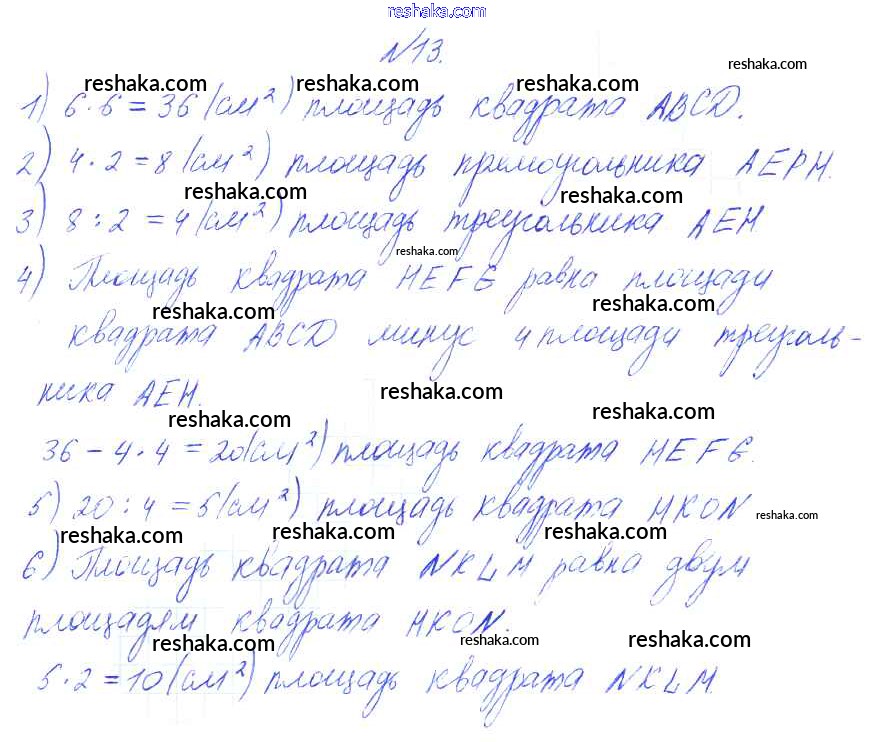 reshaka.com
№13.
reshaka.com
reshaka.com reshaka.com reshaka.com
1) 6·6=36 (см²) площадь квадрата ABCD.
2) 4·2=8 (см²) площадь прямоугольника AEPH.
reshaka.com reshaka.com
3) 8:2=4 (см²) площадь треугольника AEH
reshaka.com
4) Площадь квадрата HEFG равна площади
reshaka.com reshaka.com
квадрата ABCD минус 4 площади треуголь-
ника AEH.
reshaka.com
reshaka.com reshaka.com
36-4·4=20(см²) площадь квадрата HEFG.
5) 20:4=5(см²) площадь квадрата HKON
reshaka.com
reshaka.com reshaka.com reshaka.com
6) Площадь квадрата NKLM равна двум
площадям квадрата HKON.
reshaka.com reshaka.com reshaka.com
5·2=10(см²) площадь квадрата NKLM.